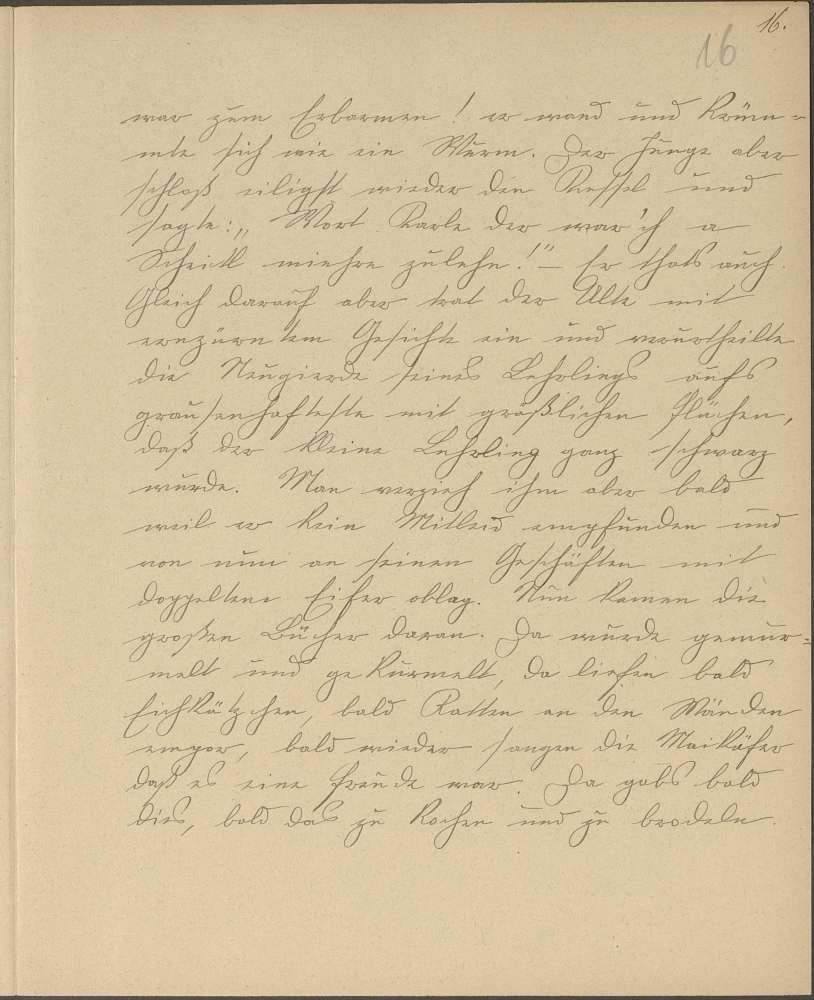 16.
16
war zum Erbarmen! er wand und krüm-
mte sich wie ein Wurm. Der Junge aber
schloß eiligst wieder den Kessel und
sagte: „Wart Karle der war'ch a
Scheitl miehre zulehn!" – Er thats auch.
Gleich darauf aber trat der Alte mit
erzürntem Gesichte ein und verurtheilte
die Neugierde seines Lehrlings aufs
grausenhafteste mit gräßlichen Flüchen,
daß der kleine Lehrling ganz schwarz
wurde. Man verzieh ihm aber bald
weil er kein Mitleid empfunden und
von nun an seinen Geschäften mit
doppeltem Eifer oblag. Nun kamen die
großen Bücher daran. Da wurde gemur-
melt und gekurmelt, da liefen bald
Eichkätzchen, bald Ratten an den Wänden
empor, bald wieder sangen die Maikäfer
daß es eine Freude war. Da gabs bald
dies, bald das zu kochen und zu brodeln.